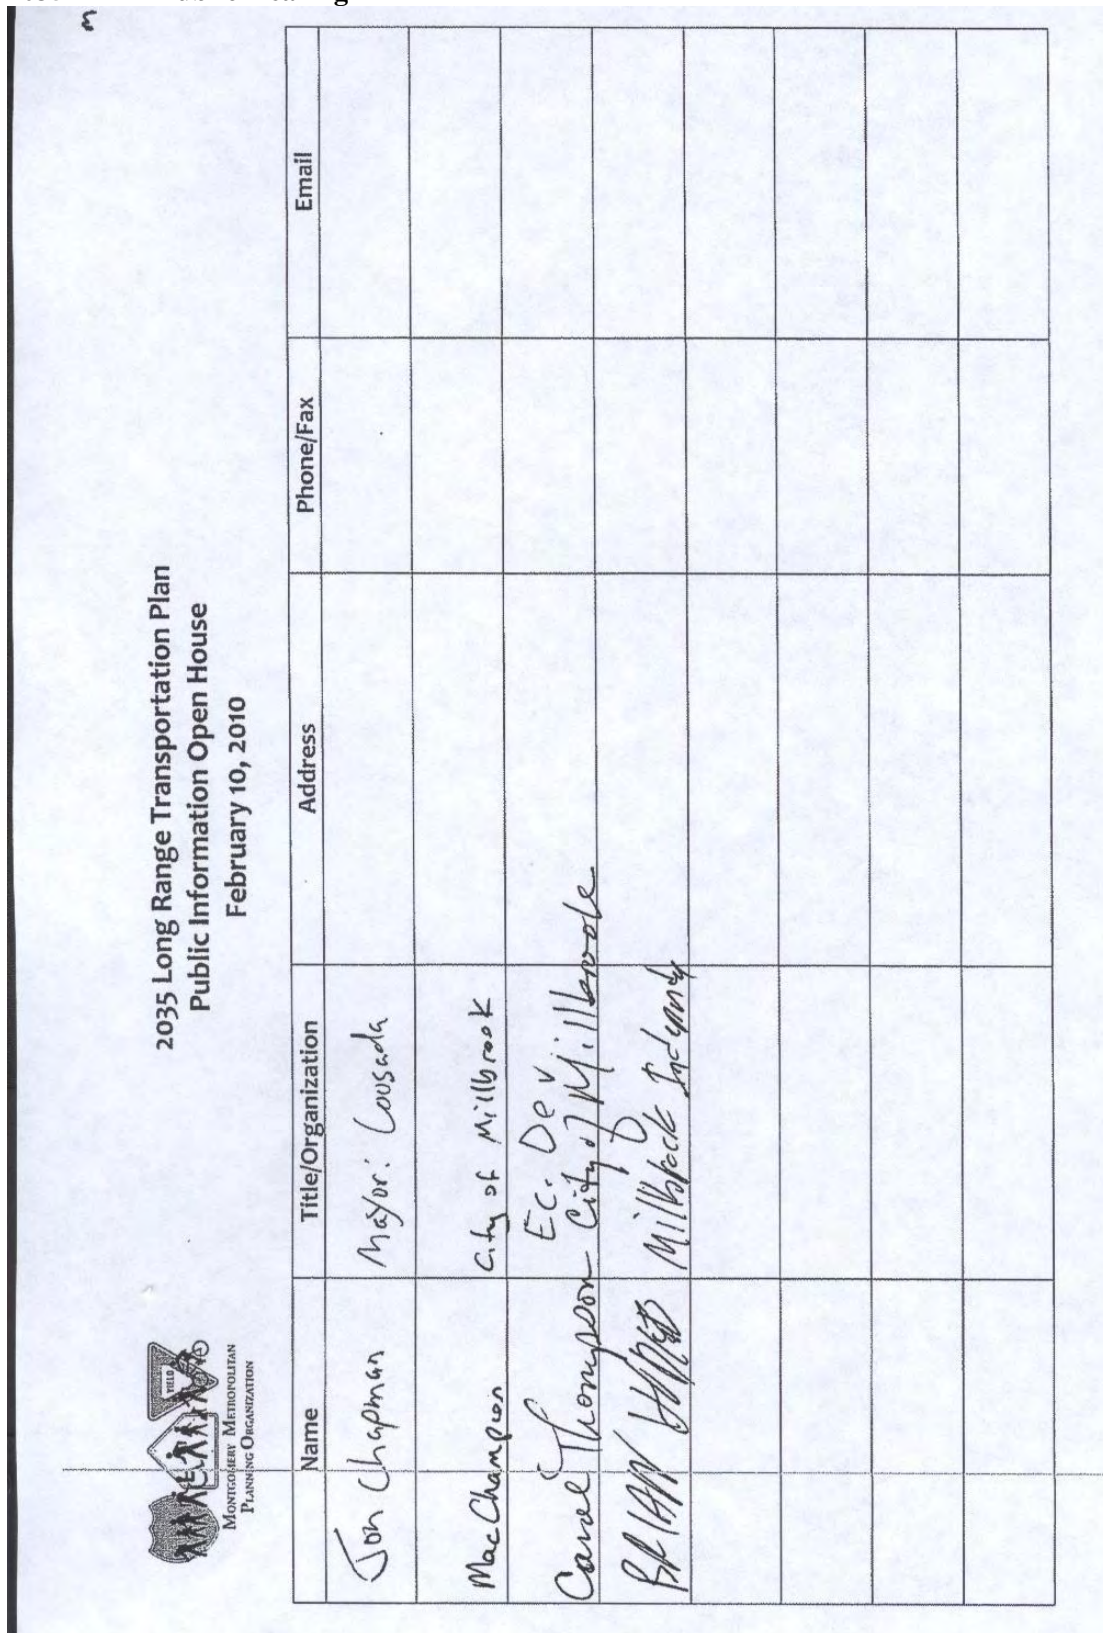 3
YIELD
MONTGOMERY METROPOLITAN
PLANNING ORGANIZATION
2035 Long Range Transportation Plan
Public Information Open House
February 10, 2010
Name Title/Organization Address Phone/Fax Email
Jon Chapman Mayor: Cousada
Mac Champion City of Millbrook
Ec. Dev
Carol Thompson City of Millbrook
BRIAN Millbrook